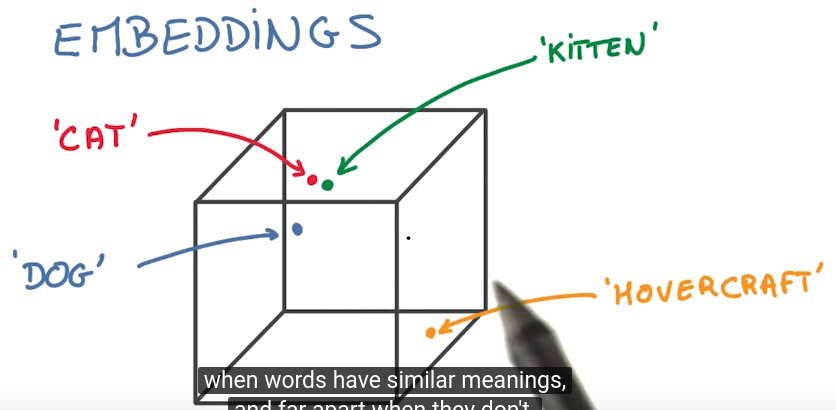 EMBEDDINGS
'KITTEN'
'CAT'
'DOG'
'HOVERCRAFT'
when words have similar meanings,
and far apart when they don't.